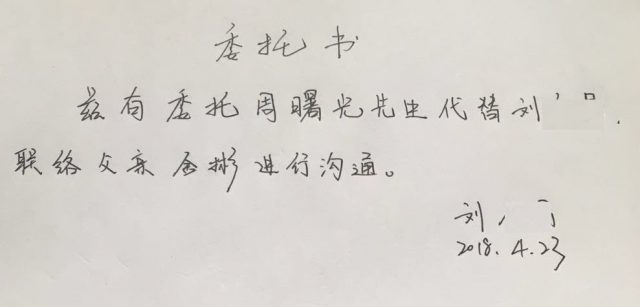 委托书
兹有委托周曙光先生代替刘
联络父亲居彬进行沟通。
刘
2018.4.23